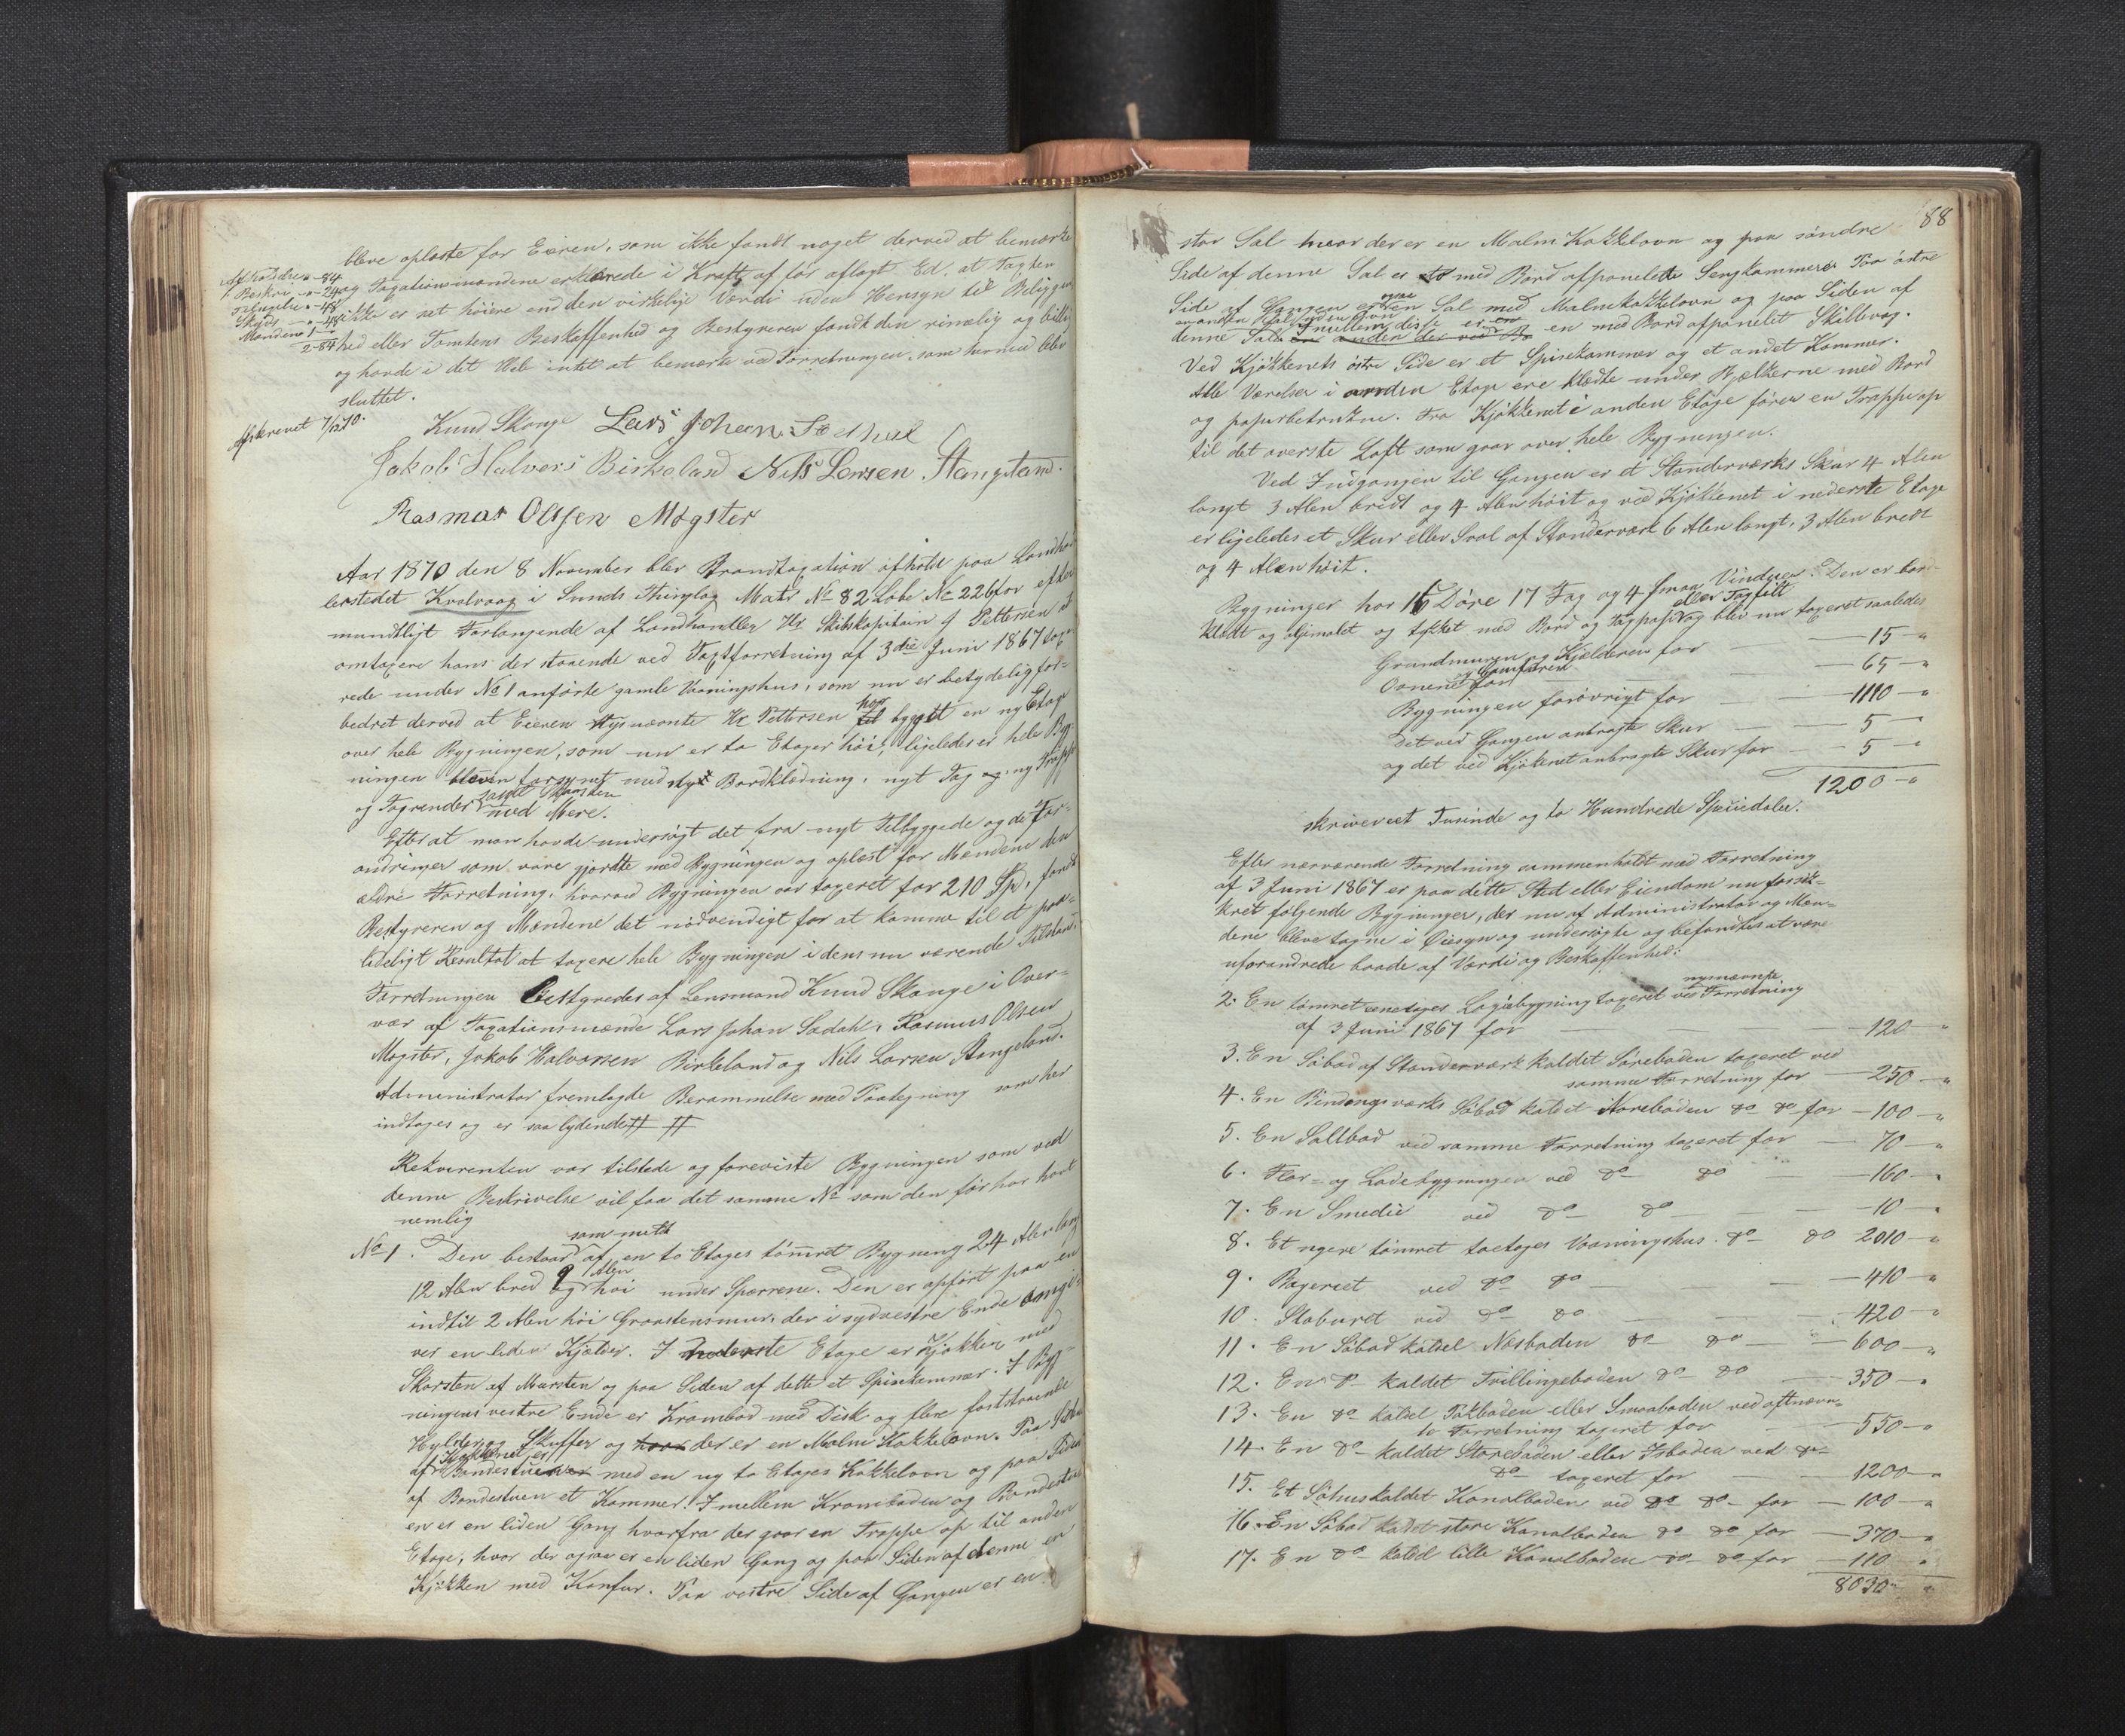 bleve oplæste for Eieren, som ikke fandt noget derved at bemærke
og Taxationsmændene erklærede i Kraft af før aflagt Ed, at Taxten
ikke er sat høiere end den virkelige Værdi uden Hensyn til Beliggen-
hed eller Tomtens Beskaffenhed og Bestyreren fandt den rimelig og billig
og havde i det Hele intet at bemærke ved Forretningen, som hermed blev
sluttet.
1 Beskri " - 24
Skyds " - 48
Mændene 1 -
2 - 84
Afskrevet 7/12 70.
Knud Skauge Lars Johan Sædhal
Jakob Halvors Birkeland Nils Larsen Stangeland.
Rasmus Olssen Møgster
Aar 1870 den 8 November blev Brandtaxation afholdt paa Landhand-
lerstedet Kvalvaag i Sunds Thinglag Matr No 82 Løbe No 226 for efter
mundtligt Forlangende af Landhandler Hr Skibskapitain J Pettersen at
omtaxere hans der staaende ved Taxtforretning af 3die Juni 1867 taxe-
rede under No 1 anførte gamle Vaaningshus, som nu er betydelig for-
bedret derved at Eieren nysnævnte Hr Pettersen har bygget en ny Etage
over hele Bygningen, som nu er to Etager høi, ligeledes er hele Byg-
ningen bleven forsynet med nyt Bordklædning, nyt Tag og ny Trappe
og Tagrender samt Skorsten
med Mere.
Efterat man havde undersøgt det fra nyt Tilbyggede og de For-
andringer som vare gjordte med Bygningen og oplæst for Mændene den
ældre Forretning, hvorved Bygningen var taxeret for 210 Spd, fandt
Bestyreren og Mændene det nødvendigt for at komme til et paa-
lideligt Resultat at taxere hele Bygningen i dens nu værende Tilstand.
Forretningen bestyredes af Lensmand Knud Skauge i Over-
vær af Taxationsmænde Lars Johan Sædahl, Rasmus Olsen
Møgster, Jakob Halvorsen Birkeland og Nils Larsen Stangeland.
Administrator fremlagde Berammelse med Paategning som her
indtages og er saa lydende # #
Rekvirenten var tilstede og foreviste Bygningen som ved
denne Beskrivelse vil faa det samme No som den før har havt
nemlig
No 1. Den bestaar som meldt af en to Etages tømret Bygning 24 Alen lang
12 Alen bred og 9 Alen høi under Sperrene. Den er opført paa en
indtil 2 Alen høi Graastensmur, der i sydvestre Ende omgi-
ver en liden Kjælder. I nederste Etage er Kjøkken med
Skorsten af Mursten og paa Siden af dette et Spisekammer. I Byg-
ningens vestre Ende er Krambod med Disk og flere faststaaende
Hylder og Skuffer og hvor der er en Malm Kakkelovn. Paa Siden
af Kjøkkenet er Bondestuen med en ny to Etages Kakkelovn og paa Siden
af Bondestuen et Kammer. Imellem Kramboden og Bondestu-
en er en liden Gang hvorfra der gaar en Trappe op til anden
Etage, hvor der ogsaa er en liden Gang og paa Siden af denne er
Kjøkken med Komfur. Paa vestre Side af Gangen er en
88
stor Sal hvor der er en Malm Kakkelovn og paa søndre
Side af denne Sal er to med Bord afpanelede Sengkammere Paa østre
Side af Gangen er ogsaa en Sal med Malmkakkelovn og paa Siden af
denne Sal en anden Sal uden Ovn Imellem disse er en med Bord afpanelet Skillevæg.
Ved Kjøkkenets østre Side er et Spisekammer og et andet Kammer.
Alle Værelser i anden Etage ere klædte under Bjelkerne med Bord
og papirbetrukne. Fra Kjøkkenet i anden Etage fører en Trappe op
til det øverste Loft som gaar over hele Bygningen.
Ved Indgangen til Gangen er et Standerværks Skur 4 Alen
langt 3 Alen bredt og 4 Alen høit og ved Kjøkkenet i nederste Etage
er ligeledes et Skur eller Sval af Standerværk 6 Alen langt, 3 Alen bredt
og 4 Alen høit.
Bygninger har 16 Døre 17 Fag og 4 smaa Vinduer. Den er bord-
klædt og oljemalet og tækket med Bord og Tagpap eller Tagfilt og blev nu taxeret saaledes
Grundmuren og Kjælderen for — 15 "
Ovnene og Komfuren for — 65 "
Bygningen forøvrigt for — 1110 "
det ved Gangen anbragte Skur — 5 "
og det ved Kjøkenet anbragte Skur for — 5 "
1200 "
skriver eet Tusinde og to Hundrede Speciedaler.
Efter nærværende Forretning sammenholdt med Forretning
af 3 Juni 1867 er paa dette Sted eller Eiendom nu forsik-
kret følgende Bygninger, der nu af Administrator og Mæn-
dene bleve tagne i Øiesyn og undersøgte og befandtes at være
uforandrede baade af Værdi og Beskaffenhed:
2. En tømret eenetages Logiebygning taxeret ved nysnævnte Forretning
af 3 Juni 1867 for — 120 "
3. En Søbod af Standerværk kaldet Søreboden taxeret ved
samme Forretning for — 250 "
4. En Bindingsværks Søbod kaldet Noreboden do do for — 100 "
5. En Saltbod ved samme Forretning taxeret for — 70 "
6. Flor- og Ladebygningen ved do do — 160 "
7. En Smedie ved do do — 10 "
8. Et nyere tømret toetages Vaaningshus do do 2010 "
9. Bageriet ved do do — 410 "
10. Staburet ved do do — 420 "
11. En Søbod kaldet Næsboden do do — 600 "
12. En do kaldet Tvillingeboden do do — 350 "
13. En do kaldet Pakboden eller Smaaboden ved oftnævn-
te Forretning taxeret for — 550 "
14. En do kaldet Storeboden eller Isboden ved do
do taxeret for — 1200 "
15. Et Søhus kaldet Kanalboden ved do do for — 100 "
16. En Søbod kaldet store Kanalboden do do for — 370 "
17. En do kaldet lille Kanalboden do do for — 110 "
8030 "